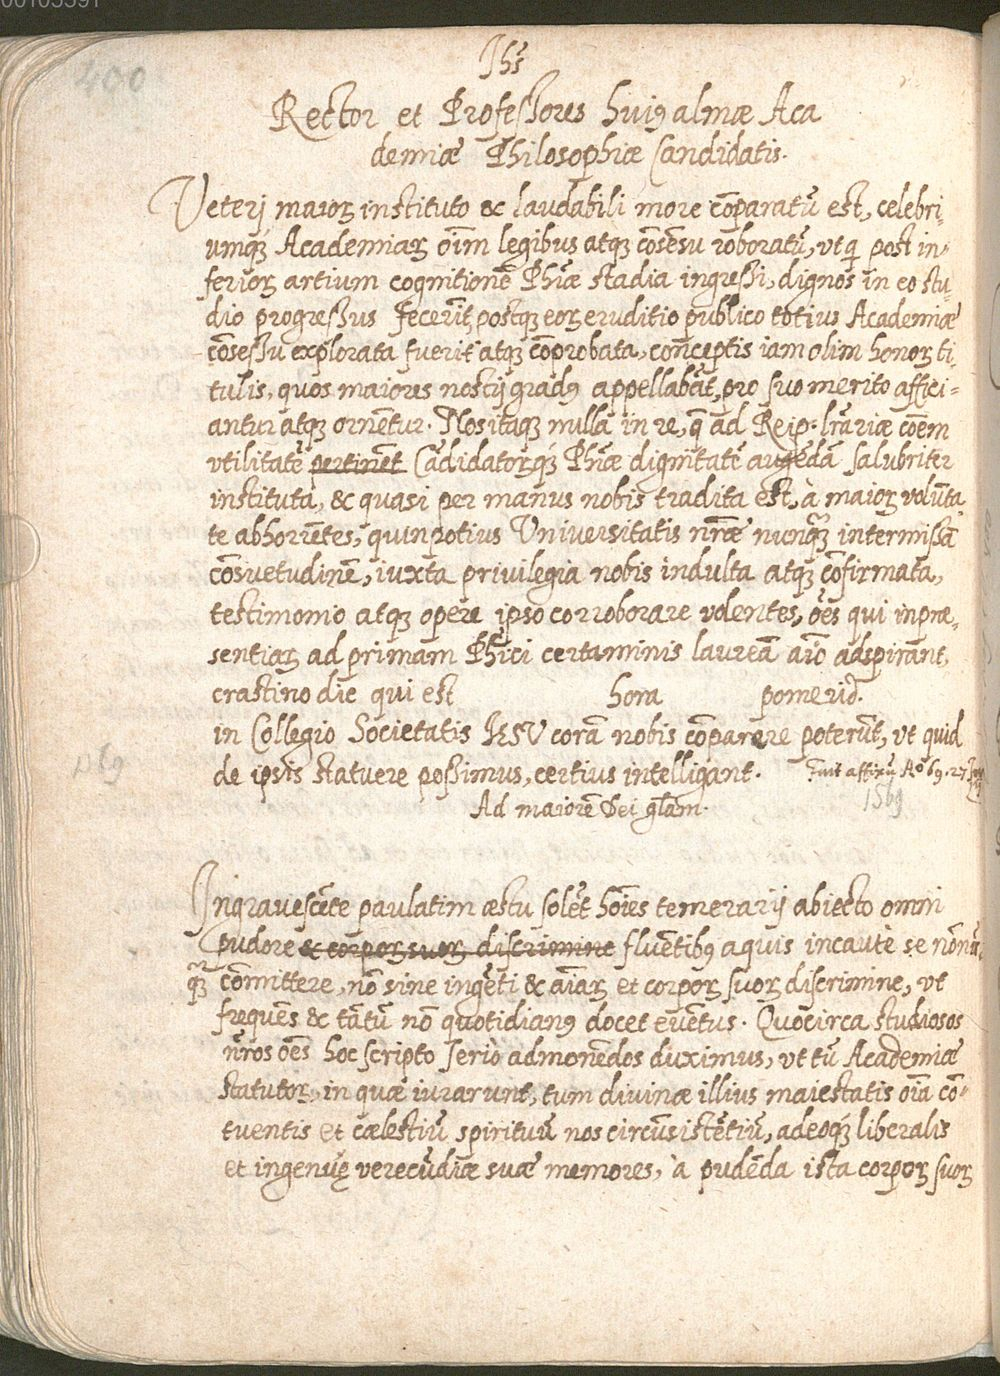 00103391
400
Jhs̄
Rector et Professores huiꝰ almæ Aca
demiæ Philosophiæ Candidatis.
Veterj maioꝝ instituto &c laudabili more cōparatū est, celebri-
umq́ꝫ Academiaꝝ oīm legibus atqꝫ cōsēsu roboratū, vt qi post in-
ferioꝝ artium cognitionē Phiæ stadia ingressi, dignos in eo stu-
dio progressus fecerīt, postqꝫ eoꝝ eruditio publico totius Academiæ
cōsessu explorata fuerit atqꝫ cōprobata, conceptis iam olim honoꝝ ti
tulis, quos maiores nostrj gradꝰ appellabāt, pro suo merito affici-
antur atqꝫ ornētur. Nos itaqꝫ nulla in re, q̄ ad Reip. lr̄ariæ cōēm
vtilitatē pertinēt Cādidatorq́ꝫ Phiæ dignitatē augēdā salubriter
instituta, & quasi per manus nobis tradita est, à maioꝝ volūta-
te abhorrētes, quin potius Vniuersitatis nr̄æ nunqꝫ intermissā
cōsvetudinē, iuxta privilegia nobis indulta atqꝫ cōfirmata,
testimonio atqꝫ opere ipso corroborare volentes, ōēs qui inpræ-
sentiaꝝ ad primam Phīci certaminis laureā aīo adspirant,
crastino die qui est hora pomerid.
in Collegio Societatis IESV corā nobis cōparere poterūt, vt quid
de ipsis statuere possimus, certius intelligant. Fuit affixū Aº 69. 27
1569
P69
Ad maiorē Dei glāam.
Ingravescēte paulatim æstu solēt hōīēs temerarij abiecto omni
pudore & corpoꝝ suoꝝ discrimine fluētibꝰ aquis incautè se nōnū-
qꝫ cōmittere, nō sine ingēti & aīaꝝ et corpoꝝ suoꝝ discrimine, vt
frequēs & tātū nō quotidianꝰ docet evētus. Quocirca studiosos
nr̄os ōēs hoc scripto seriò admonēdos duximus, vt tū Academiæ
Statutoꝝ, in quæ iurarunt, tum divinæ illius maiestatis oīa cō-
tuentis et cælestiū spirituū nos circūsistētiū, adeoq́ꝫ liberalis
et ingenuę verecūdiæ suæ memores, à pudēda ista corpoꝝ suoꝝ